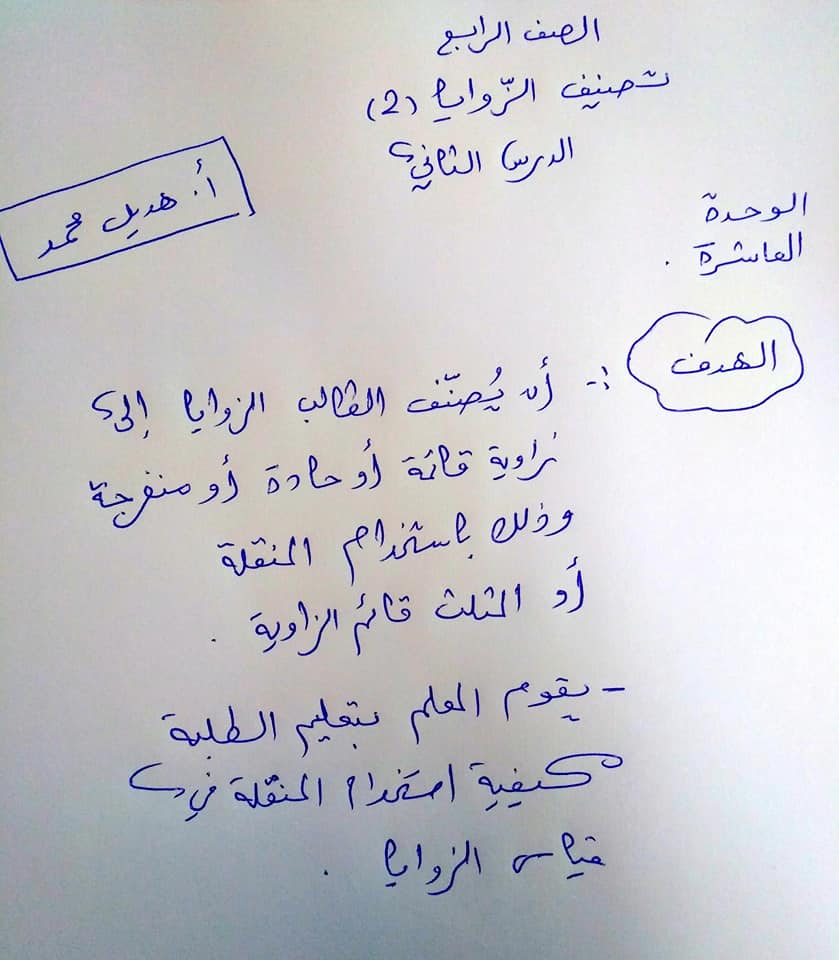 الصف الرابع
تصنيف الزّوايا (2)
الدرس الثاني
أ. هديل محمد
الوحدة
العاشرة .
الهدف :- أن يُصنّف الطالب الزوايا إلى
زاوية قائمة أو حادة أو منفرجة
وذلك باستخدام المنقلة
أو المثلث قائم الزاوية .
- يقوم المعلم بتعليم الطلبة
كيفية استخدام المنقلة في
قياس الزوايا .